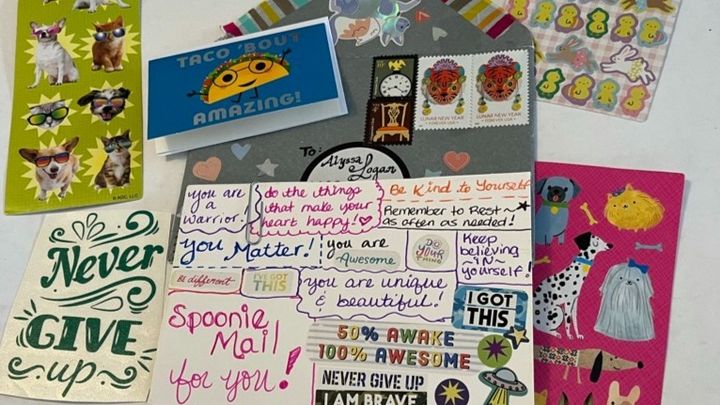 TACO 'BOUT
AMAZING!
LUNAR NEW YEAR
FOREVER USA
LUNAR NEW YEAR
FOREVER USA
To:
Alyssa
Logan
you are
a
warrior!
do the things
that make your
heart happy!
Be Kind to Yourself
Remember to Rest
as often as needed!
you Matter!
you are
Awesome
DO
YOUR
THING
Keep
believing
~IN~
yourself!
Be different
I'VE GOT
THIS
you are unique
& beautiful!
I GOT
THIS
Never
GIVE
up
Spoonie
Mail
for you!
50% AWAKE
100% AWESOME
NEVER GIVE UP
I AM BRAVE